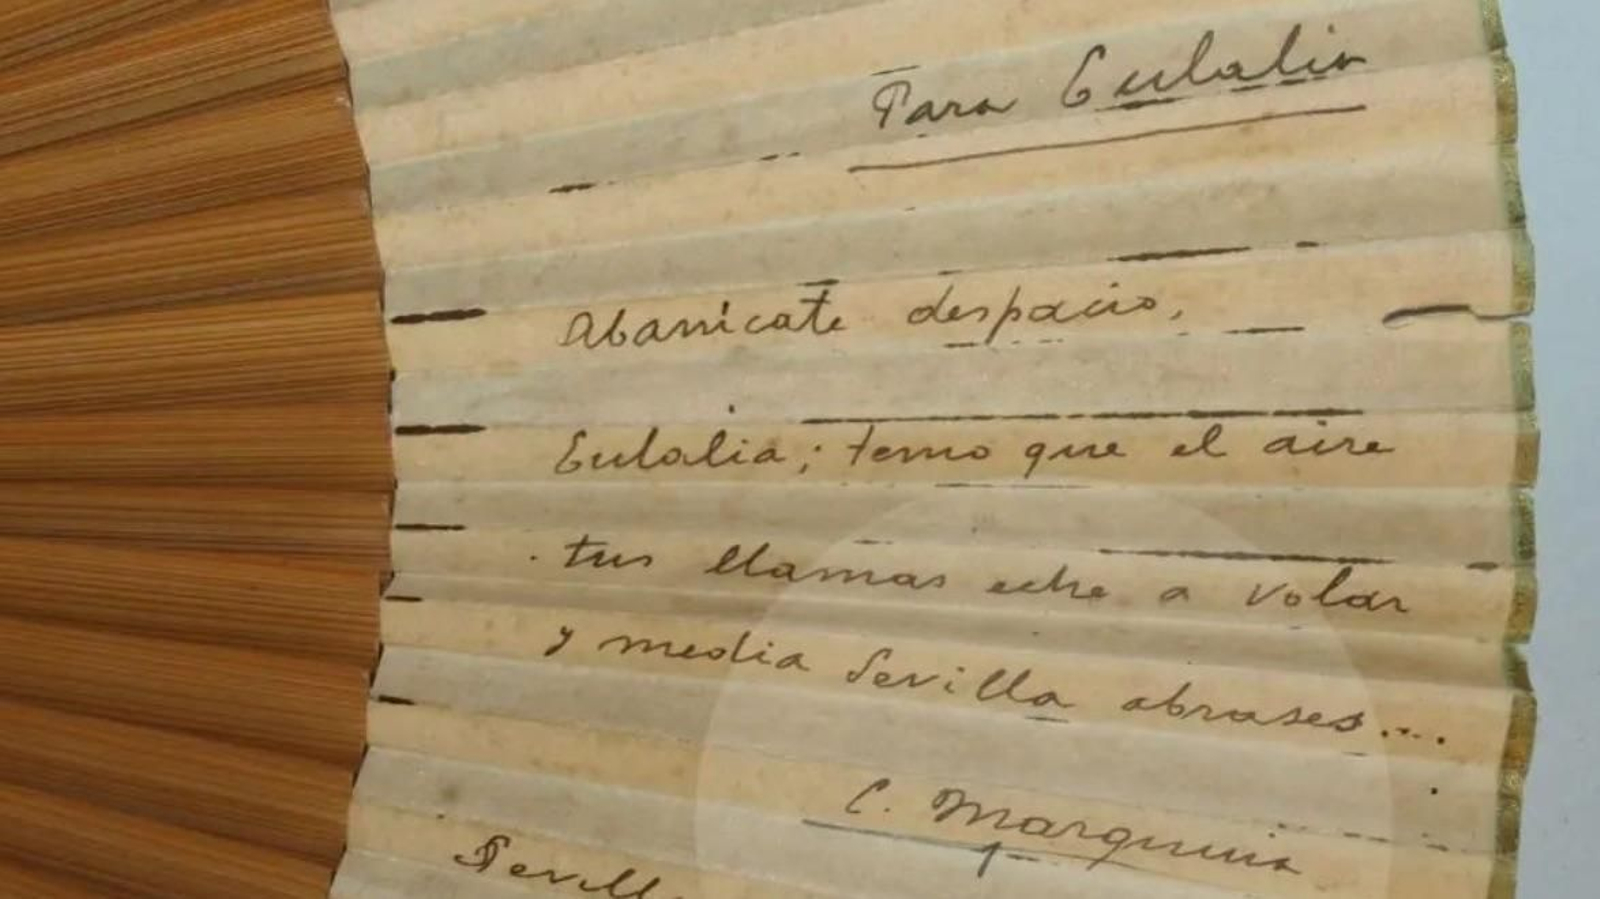 Para Eulalia
Abanícate despacio,
Eulalia; temo que el aire
tus llamas eche a volar
y media Sevilla abrases....
C. Marquina
Sevill